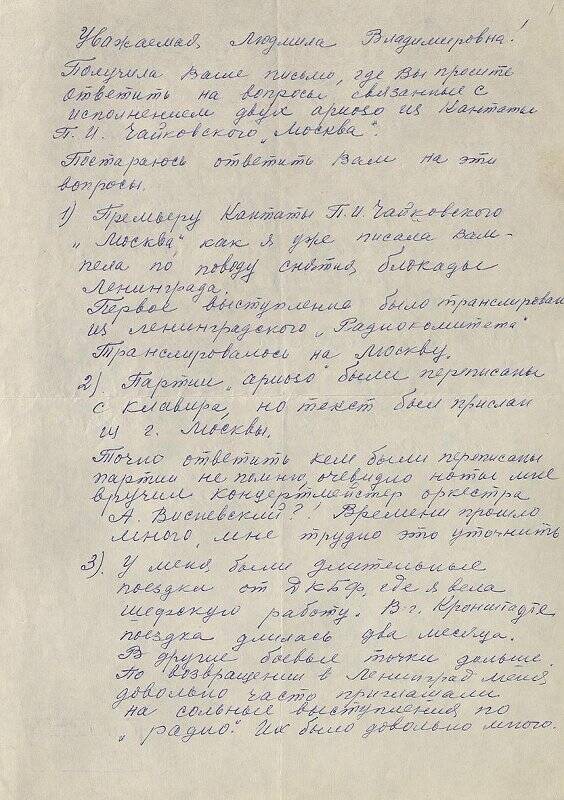 1
Уважаемая Людмила Владимировна!
Получила Ваше письмо, где Вы просите
ответить на вопросы связанные с
исполнением двух ариозо из Кантаты
П. И. Чайковского „Москва".
Постараюсь ответить Вам на эти
вопросы.
1) Премьеру Кантаты П.И. Чайковского
„Москва", как я уже писала Вам-
пела по поводу снятия блокады
Ленинграда.
Первое выступление было транслирован
из Ленинградского „Радиокомитета"
Транслировалось на Москву.
2). Партии „ариозо" были переписаны
с клавира, но текст был прислан
из г. Москвы.
Точно ответить кем были переписаны
партии не помню, очевидно ноты мне
вручил концертмейстер оркестра
А. Висневский?! Времени прошло
много, мне трудно это уточнить
3). У меня были длительные
поездки от ДКБФ, где я вела
шефскую работу. В г. Кронштадте
поездка длилась два месяца.
В другие боевые точки дольше.
По возвращении в Ленинград меня
довольно часто приглашали
на сольные выступления по
„радио". Их было довольно много.